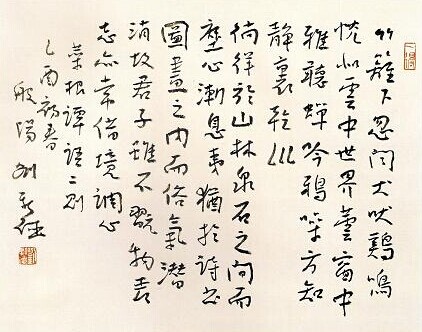 竹籬下忽聞犬吠鷄鳴
恍似雲中世界蕓窗中
雅聽蟬吟鴉噪方知
靜裏乾巛
徜徉於山林泉石之間而
塵心漸息夷猶於詩書
圖畫之内而俗氣潛
消故君子雖不翫物喪
志亦常借境調心
菜根譚語二則
乙酉初春
般陽